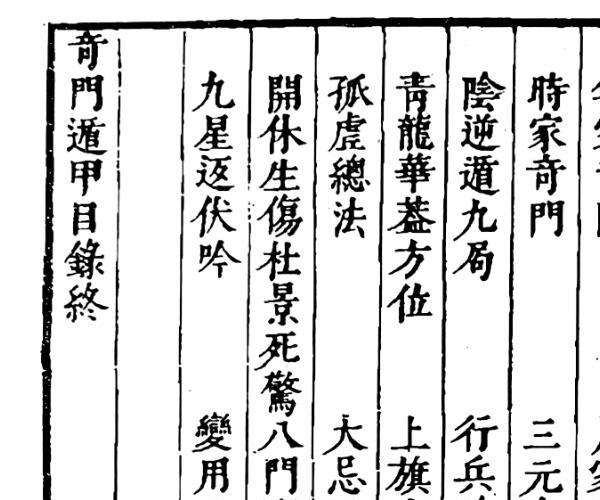 時家奇門 三元
陰逆遁九局 行兵
青龍華蓋方位 上旗
孤虛總法 大忌
開休生傷杜景死驚八門
九星返伏吟 變用
奇門遁甲目錄終